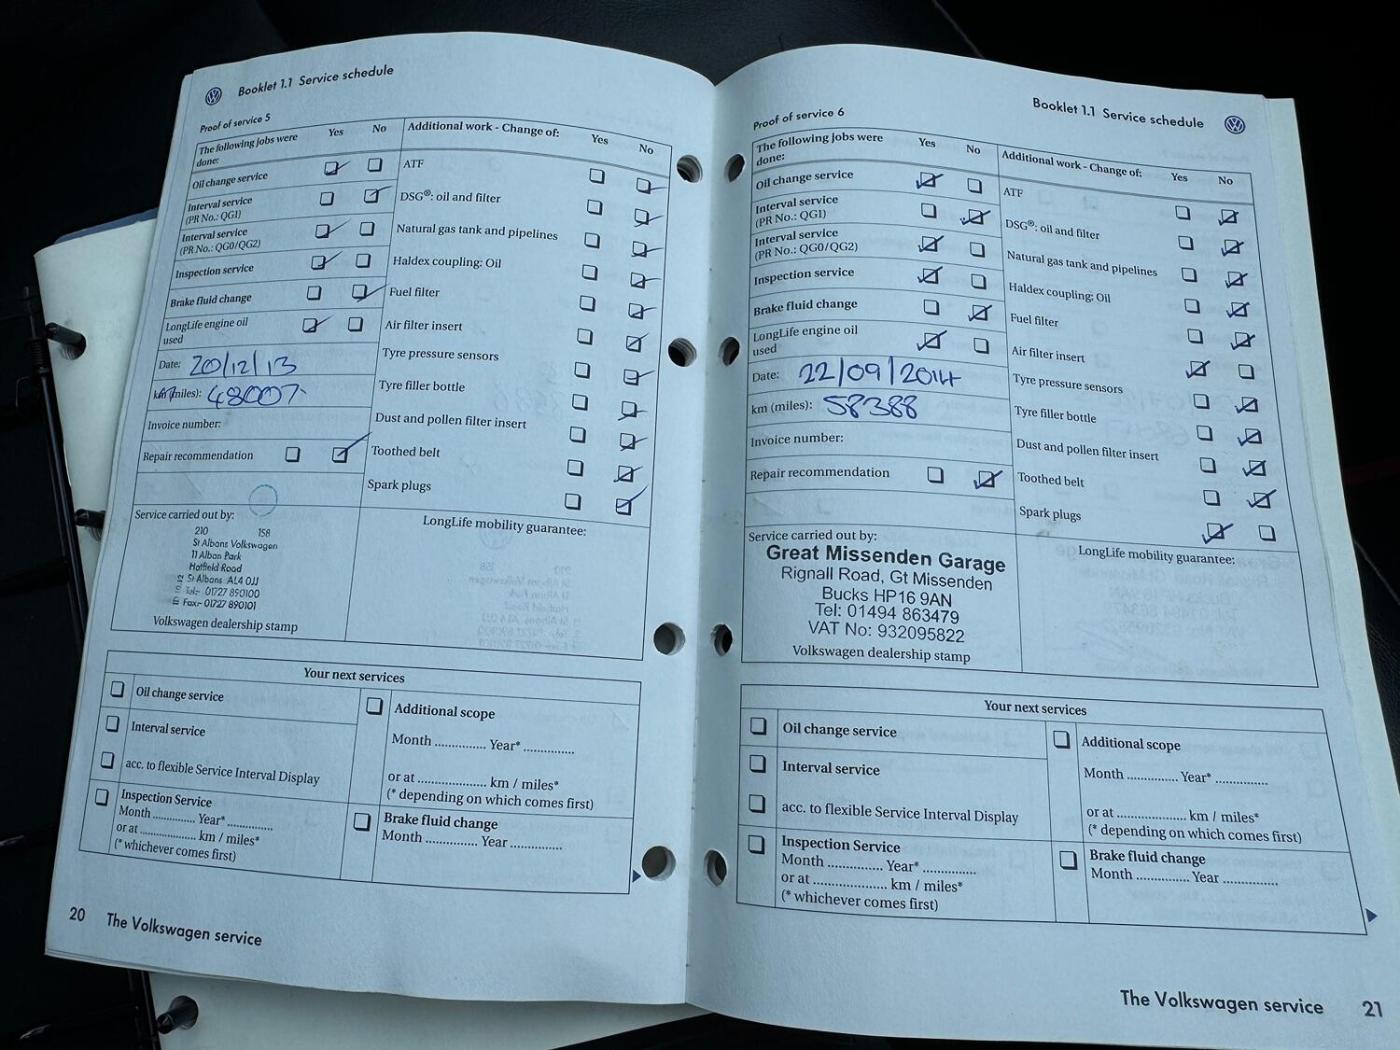 Booklet 1.1 Service schedule
Proof of service 5
The following jobs were done:
Yes
No
Oil change service
Interval service
(PR No.: QG1)
Interval service
(PR No.: QG0/QG2)
Inspection service
Brake fluid change
LongLife engine oil
used
Date: 20/12/13
km (miles): 48007
Invoice number:
Repair recommendation
Additional work - Change of:
Yes
No
ATF
DSG®: oil and filter
Natural gas tank and pipelines
Haldex coupling: Oil
Fuel filter
Air filter insert
Tyre pressure sensors
Tyre filler bottle
Dust and pollen filter insert
Toothed belt
Spark plugs
Service carried out by:
210 158
St Albans Volkswagen
11 Alban Park
Hatfield Road
St Albans AL4 0JJ
Tel:- 01727 890100
Fax:- 01727 890101
Volkswagen dealership stamp
LongLife mobility guarantee:
Your next services
Oil change service
Interval service
acc. to flexible Service Interval Display
Inspection Service
Month .............. Year* ..............
or at .................. km / miles*
(* whichever comes first)
Additional scope
Month ............... Year* ...............
or at .................... km / miles*
(* depending on which comes first)
Brake fluid change
Month ............... Year ...............
20 The Volkswagen service
Booklet 1.1 Service schedule
Proof of service 6
The following jobs were
done:
Yes
No
Oil change service
Interval service
(PR No.: QG1)
Interval service
(PR No.: QG0/QG2)
Inspection service
Brake fluid change
LongLife engine oil
used
Date: 22/09/2014
km (miles): 58388
Invoice number:
Repair recommendation
Additional work - Change of:
Yes
No
ATF
DSG®: oil and filter
Natural gas tank and pipelines
Haldex coupling: Oil
Fuel filter
Air filter insert
Tyre pressure sensors
Tyre filler bottle
Dust and pollen filter insert
Toothed belt
Spark plugs
Service carried out by:
Great Missenden Garage
Rignall Road, Gt Missenden
Bucks HP16 9AN
Tel: 01494 863479
VAT No: 932095822
Volkswagen dealership stamp
LongLife mobility guarantee:
Your next services
Oil change service
Interval service
acc. to flexible Service Interval Display
Inspection Service
Month .............. Year* ...............
or at .................... km / miles*
(* whichever comes first)
Additional scope
Month ............... Year* ...............
or at .................... km / miles*
(* depending on which comes first)
Brake fluid change
Month ............... Year ...............
The Volkswagen service 21